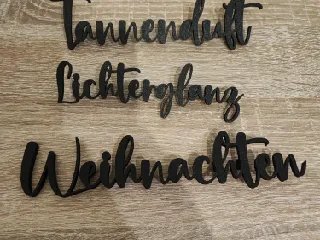 Tannenduft
Lichterglanz
Weihnachten